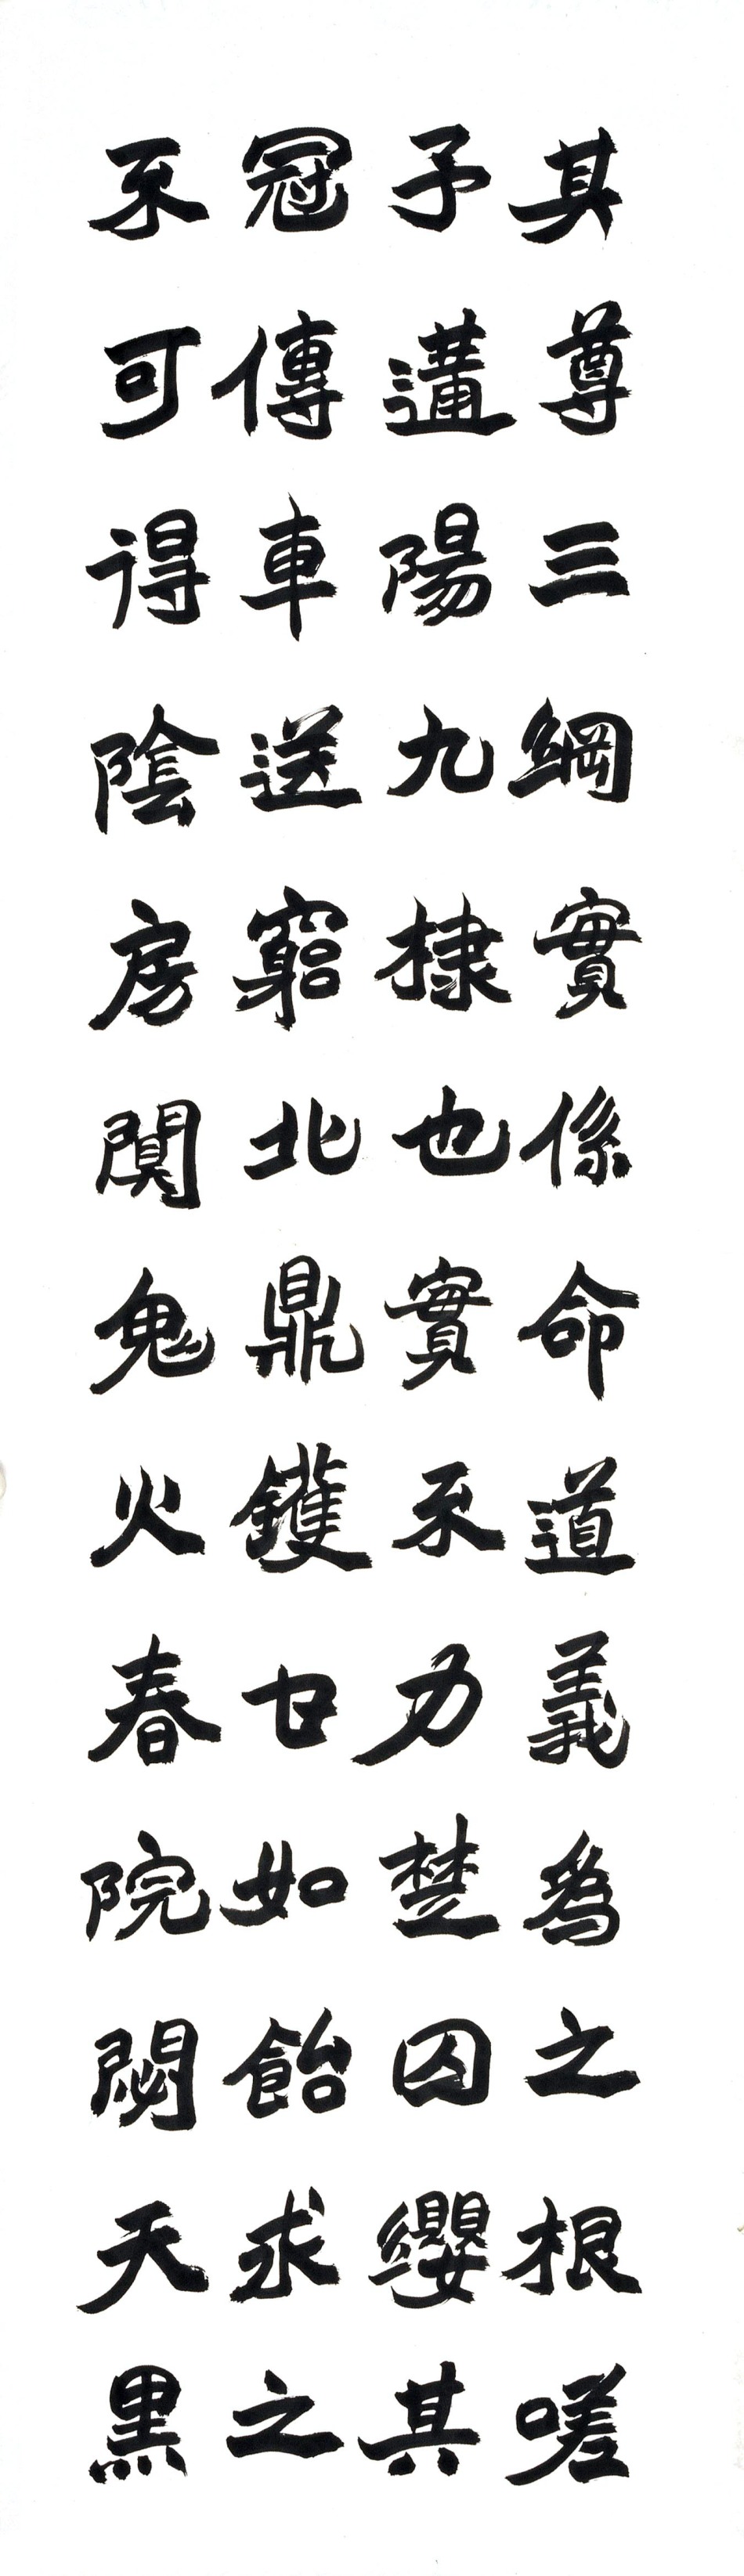 其尊三綱實係命道義為之根嗟
予遘陽九棣也實不力楚囚纓其
冠傳車送窮北鼎鑊甘如飴求之
不可得陰房闃鬼火春院閟天黑